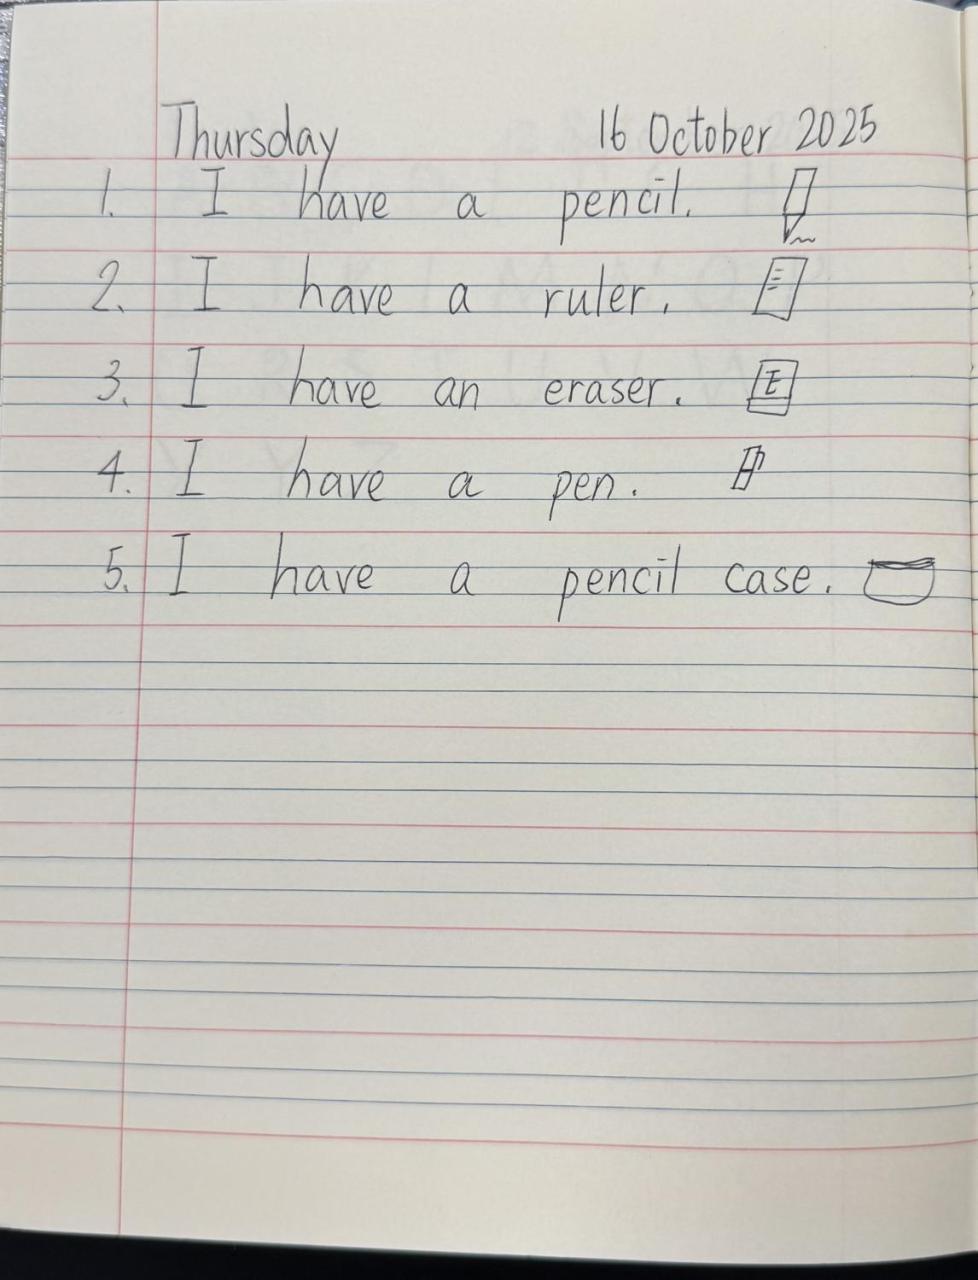 Thursday 16 October 2025
1. I have a pencil.
2. I have a ruler.
3. I have an eraser. E
4. I have a pen.
5. I have a pencil case.